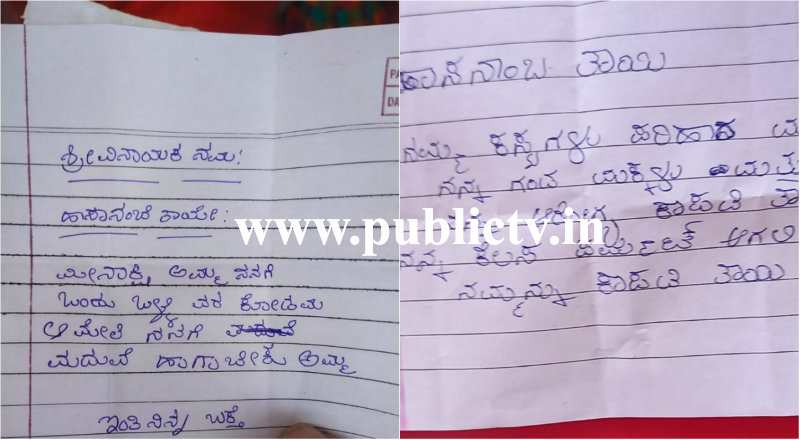 ಶ್ರೀ ವಿನಾಯಕ ನಮ:
ಹಾಸಾನಂಬೆ ತಾಯೇ:
ಮೀನಾಕ್ಷಿ ಅಮ್ಮ ನನಗೆ
ಒಂದು ಒಳ್ಳೆ ವರ ಕೋಡಮ
ಆಮೇಲೆ ನನಗೆ
ಮದುವೆ ಹಾಗಾಬೇಕು ಅಮ್ಮ
ಇಂತಿ ನಿನ್ನ ಬಕ್ತೆ
ಹಾಸನಾಂಬ ತಾಯಿ
ನಮ್ಮ ಕಷ್ಟಗಳು ಪರಿಹಾರ
ನನ್ನ ಗಂಡ ಮಕ್ಕಳು
ಆರೋಗ್ಯ ಕಾಪಾಡಿ
ನನ್ನ ಕೆಲಸ ಪರ್ಮನೆಂಟ್ ಆಗಲಿ
ನಮ್ಮನ್ನು ಕಾಪಾಡಿ ತಾಯಿ
www.publictv.in